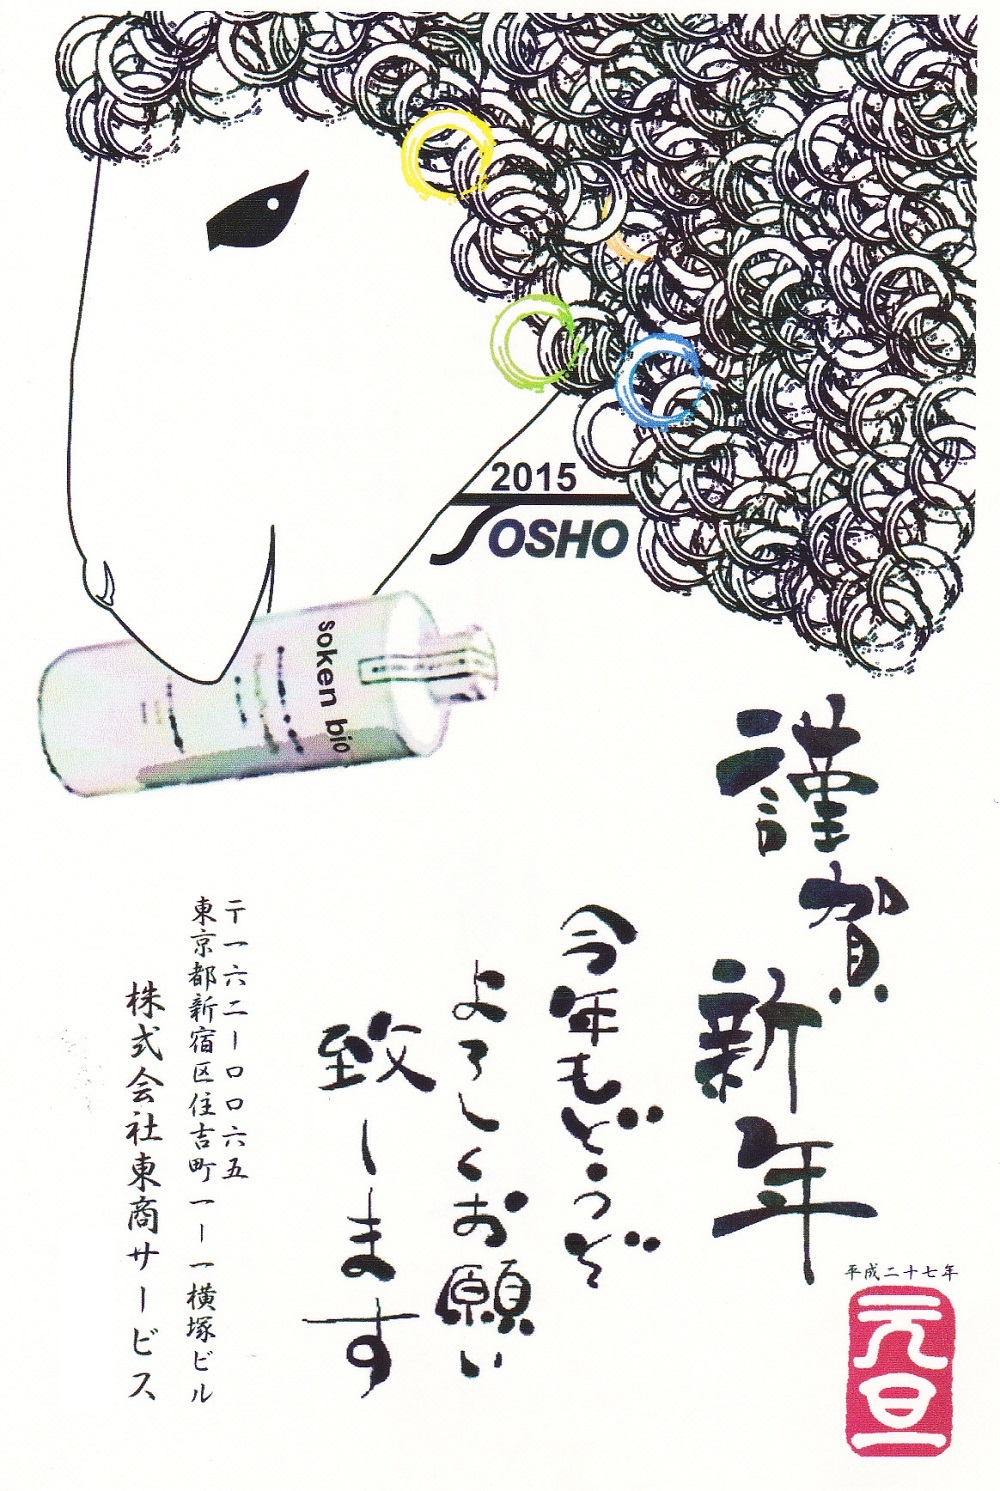 2015
TOSHO
soken bio
謹賀
新年
平成二十七年
元旦
今年もどうぞ
よろしくお願い
致します
〒一六二ー〇〇六五
東京都新宿区住吉町一ー一横塚ビル
株式会社東商サービス